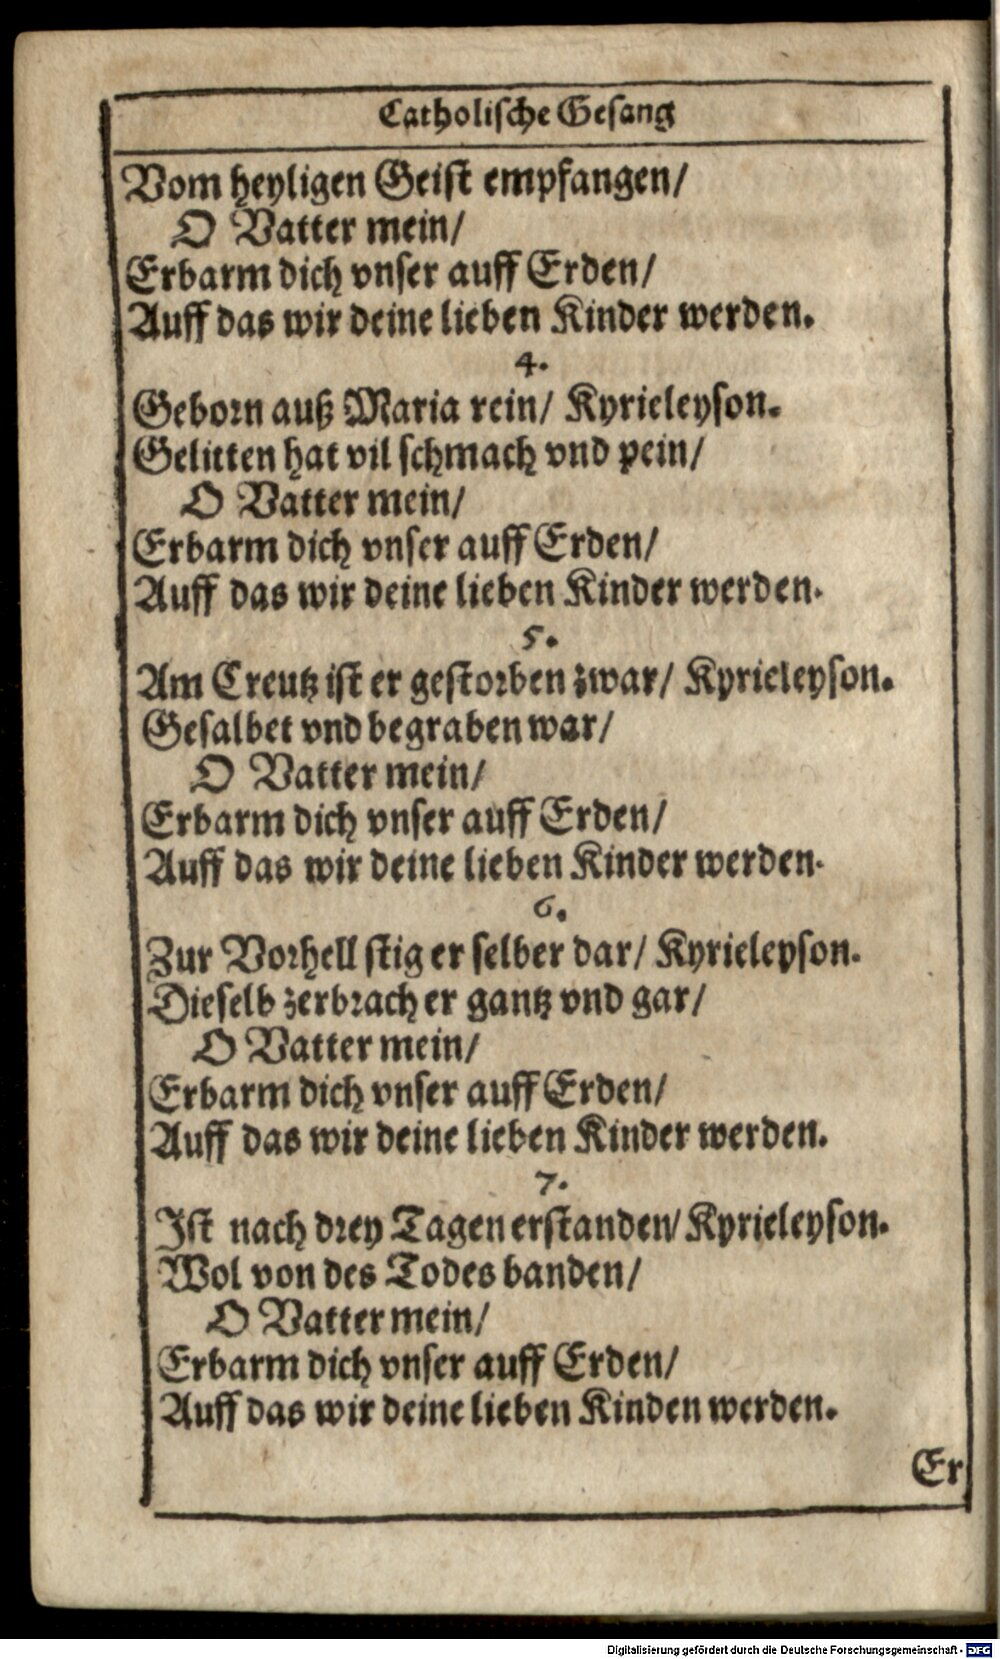 Catholische Gesang
Vom heyligen Geist empfangen/
O Vatter mein/
Erbarm dich vnser auff Erden/
Auff das wir deine lieben Kinder werden.
4.
Geborn auß Maria rein/ Kyrieleyson.
Gelitten hat vil schmach vnd pein/
O Vatter mein/
Erbarm dich vnser auff Erden/
Auff das wir deine lieben Kinder werden.
5.
Am Creutz ist er gestorben zwar/ Kyrieleyson.
Gesalbet vnd begraben war/
O Vatter mein/
Erbarm dich vnser auff Erden/
Auff das wir deine lieben Kinder werden.
6.
Zur Vorhell stig er selber dar/ Kyrieleyson.
Dieselb zerbrach er gantz vnd gar/
O Vatter mein/
Erbarm dich vnser auff Erden/
Auff das wir deine lieben Kinder werden.
7.
Ist nach drey Tagen erstanden/ Kyrieleyson.
Wol von des Todes banden/
O Vatter mein/
Erbarm dich vnser auff Erden/
Auff das wir deine lieben Kinden werden.
Er
Digitalisierung gefördert durch die Deutsche Forschungsgemeinschaft - DFG